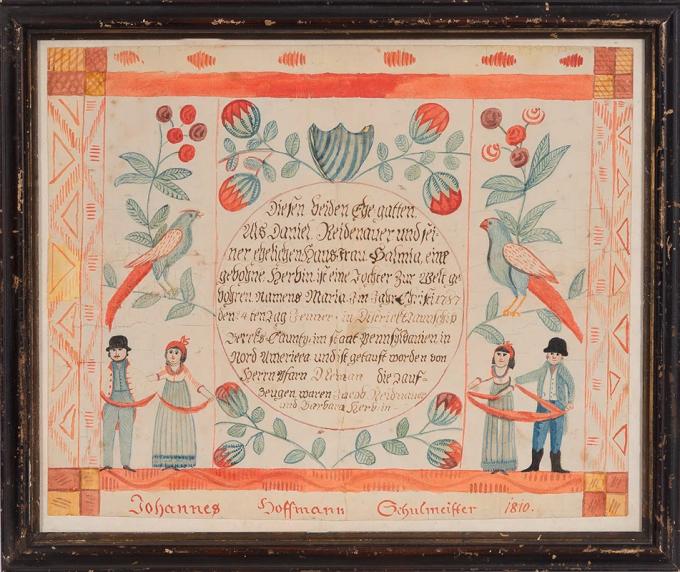 Diesen beiden Ehe gatten.
Als Daniel Reidenauer und sei-
ner ehelichen Hausfrau Salmia, eine
gebohne Herbin ist eine Tochter zur Welt ge
bohren Namens Maria. Im Jahr Christi 1787
den 4ten Tag Jenner. in District Taunschip
Bereks-County im staat Pennsyldanien in
Nord Americca und ist getauft worden von
Herrn Pfarn die Tauf-
zeugen waren Jacob Reidnauer
und Barbara Herbin
Johannes Hoffmann Schulmeister 1810.